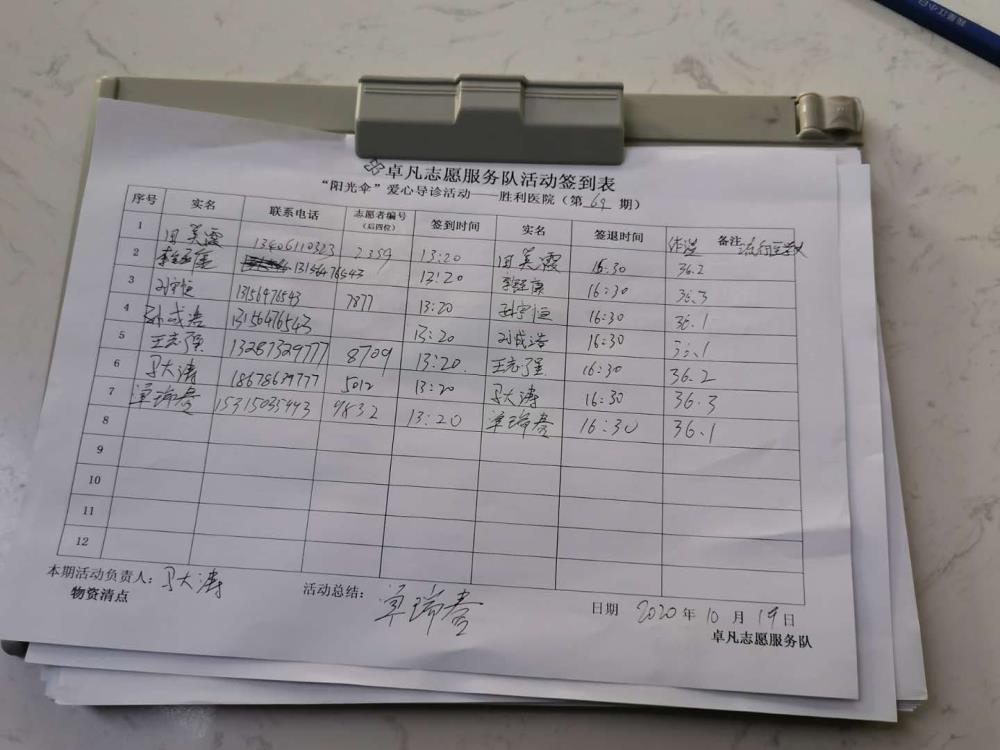 卓凡志愿服务队活动签到表
“阳光伞”爱心导诊活动——胜利医院（第69期）
序号 实名 联系电话 志愿者编号（后四位） 签到时间 实名 签退时间 备注 体温
1 田美霞 13406110323 2359 13:20 田美霞 16:30 36.2
2 13156476543 13:20 16:30 36.3
3 刘宇恒 13156476543 7877 13:20 16:30 36.1
4 13156476543 13:20 16:30 36.1
5 王志强 13287329777 8709 13:20 王志强 16:30 36.2
6 马大涛 18678679777 5012 13:20 马大涛 16:30 36.3
7 卓瑞春 15315035443 9832 13:20 卓瑞春 16:30 36.1
8
9
10
11
12
本期活动负责人：马大涛 活动总结：卓瑞春
物资清点 日期 2020年10月19日
卓凡志愿服务队